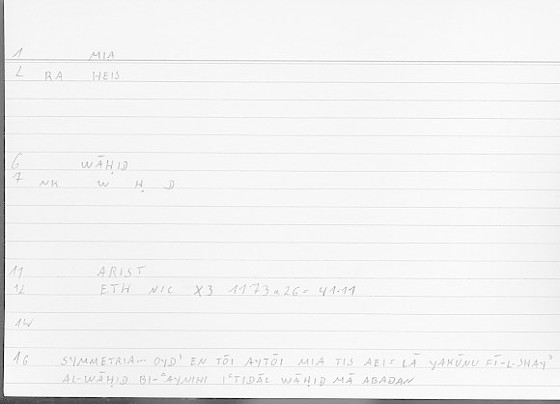 1 MIA
2 RA HEIS
6 WĀḤID
7 NK W Ḥ D
11 ARIST
12 ETH NIC X3 1173a26 = 41.11
14
16 SYMMETRIA... OYD' EN TŌI AYTŌI MIA TIS AEI = LĀ YAKŪNU FĪ-L-SHAYʾ
AL-WĀḤID BI-ʿAYNIHI IʿTIDĀL WĀḤID MĀ ABADAN